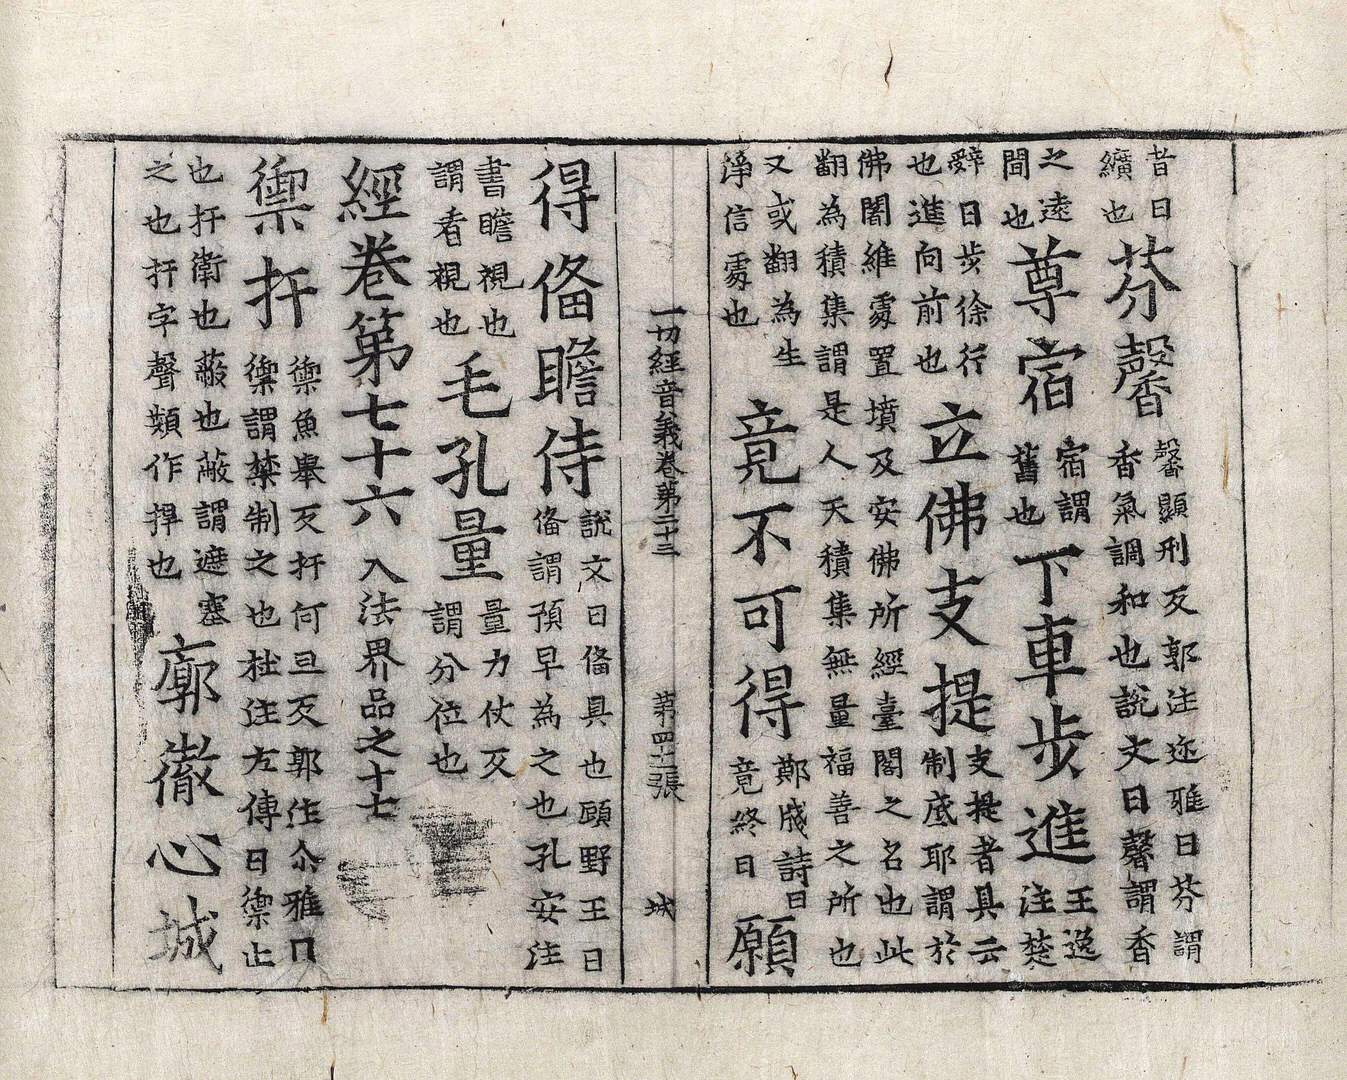 昔曰纊也芬馨馨顯刑反郭注迩雅曰芬謂香氣調和也說文曰馨謂香
之遠聞也尊宿宿謂舊也下車步進王逸注楚
辝曰步徐行也進向前也立佛支提支提者具云制底耶謂於
佛闍維處置墳及安佛所經臺閣之名也此翻為積集謂是人天積集無量福善之所也
又或翻為生淨信處也竟不可得鄭牋詩曰竟終日願
一切經音義卷第二十三 第四十一張 城
得俻瞻侍說文曰俻具也顧野王曰俻謂預早為之也孔安注
書瞻視也謂看視也毛孔量量力仗反謂分位也
經卷第七十六 入法界品之十七
禦扞禦魚舉反扞何旦反郭注尒雅曰禦謂禁制之也杜注左傳曰禦止
也扞衛也蔽也蔽謂遮塞之也扞字聲類作捍也廓徹心城